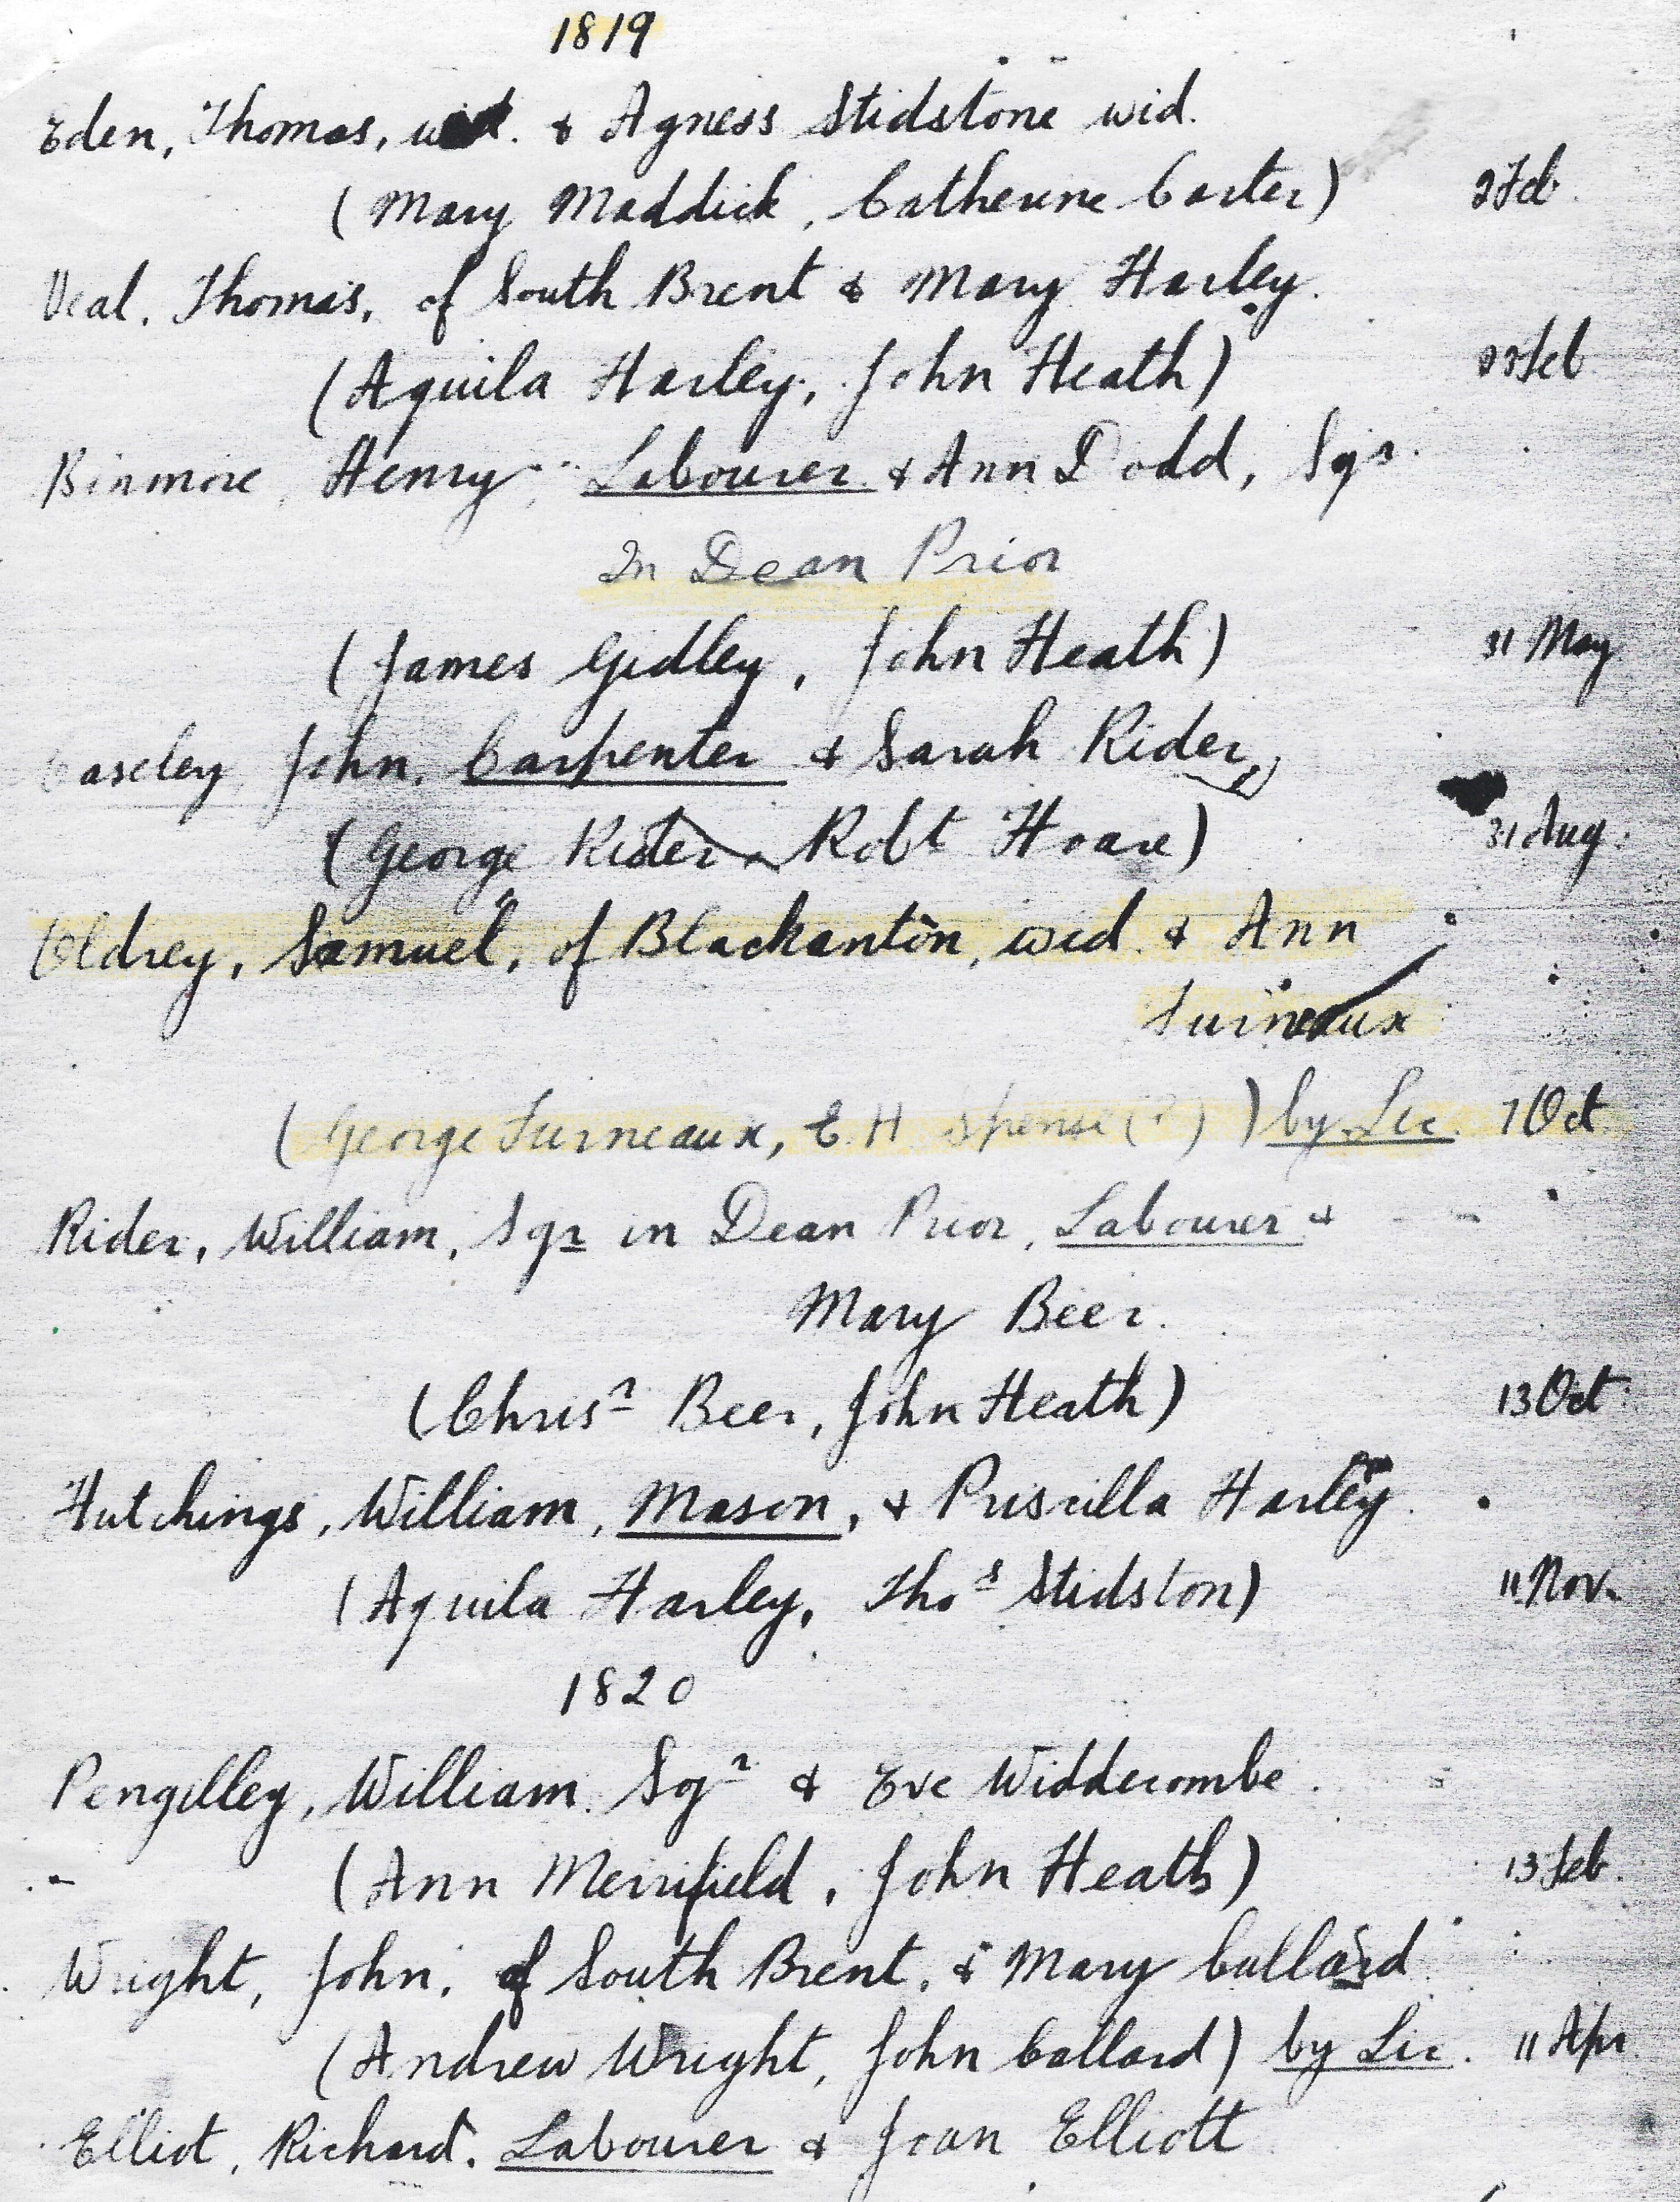 1819
Eden, Thomas, wid. & Agness Stidstone wid.
(Mary Maddick, Catherine Carter) 2 Feb.
Veal, Thomas, of South Brent & Mary Harley.
(Aquila Harley, John Heath) 22 Feb
Binmore, Henry, Labourer & Ann Dodd, Sgrs.
In Dean Prior
(James Gidley, John Heath) 31 May
Easeley, John, Carpenter & Sarah Rider,
(George Rider Robt Hoare) 31 Aug.
Oldrey, Samuel, of Blackanton, wid. & Ann
Furneaux
(George Furneaux, E.H. Spense (?) ) by Lic. 7 Oct
Rider, William, Sgr in Dean Prior, Labourer &
Mary Beer.
(Chrisr Beer, John Heath) 13 Oct.
Hutchings, William, Mason, & Priscilla Harley.
(Aquila Harley, Thos Stidston) 11 Nov.
1820
Pengilley, William. Sgr & Eve Widdecombe.
(Ann Merrifield, John Heath) 13 Feb.
Wright, John, of South Brent, & Mary Callard
(Andrew Wright, John Callard) by Lic. 11 Apr.
Elliot, Richard. Labourer & Joan Elliott